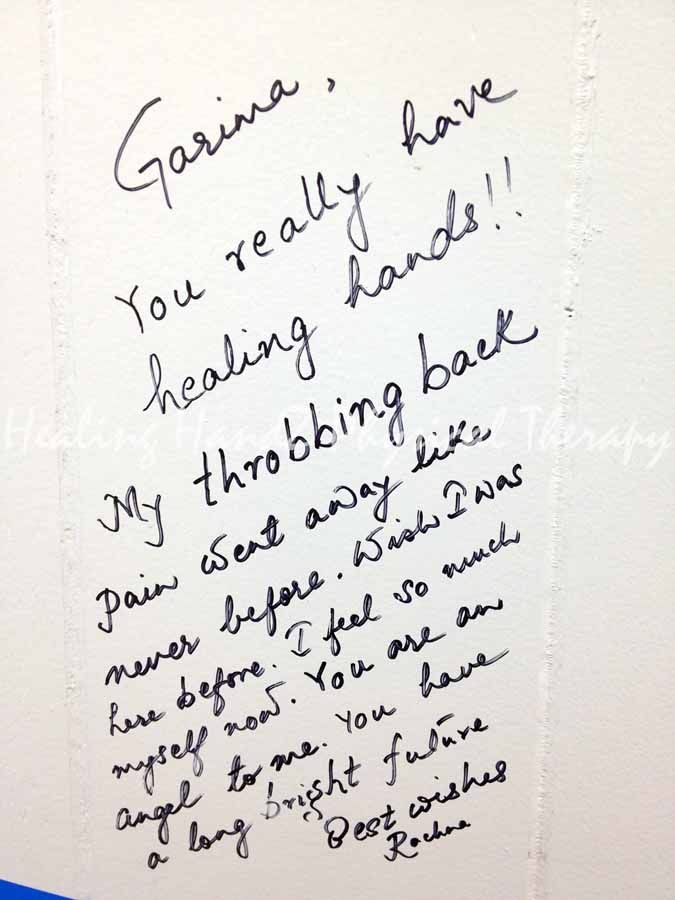 Garima,
You really have
healing hands!!
My throbbing back
pain went away like
never before. Wish I was
here before. I feel so much
myself now. You are an
angel to me. You have
a long bright future
Best wishes
Rachna
Healing Hands Physical Therapy